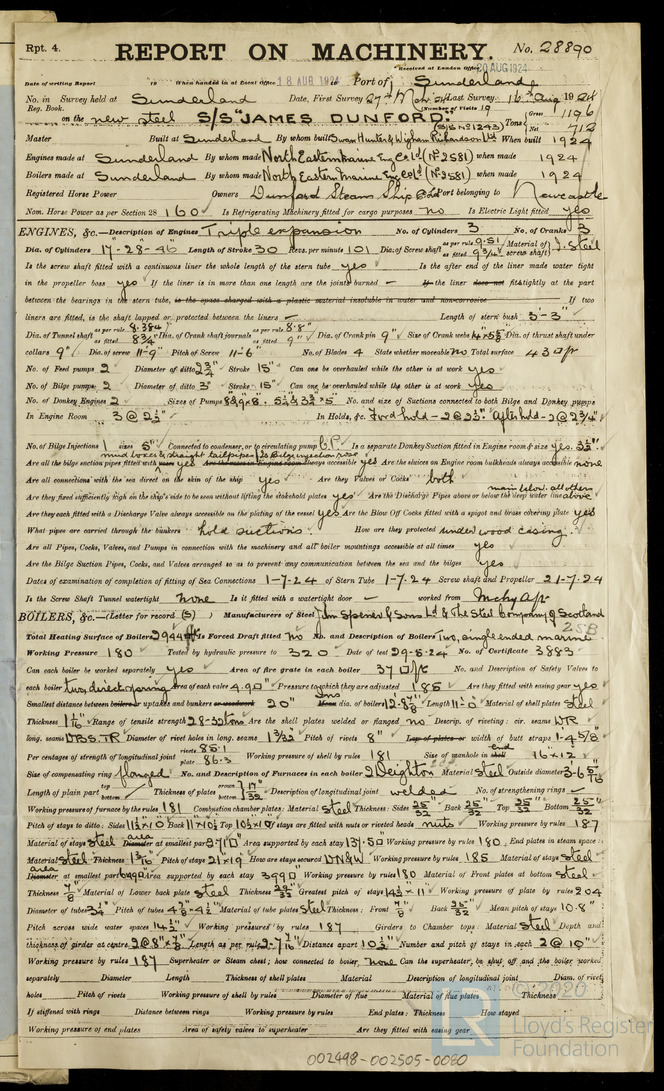 Rpt. 4.
REPORT ON MACHINERY. No. 28890
Received at London Office 20 AUG 1924
Date of writing Report 19 When handed in at Local Office 18 AUG 1924 Port of Sunderland
No. in Survey held at Sunderland Date, First Survey 27th Nov 23 Last Survey 16th Aug 1924
Reg. Book. (Number of Visits 19
on the new steel S/S "JAMES DUNFORD." (S/S No 1243) Tons Gross 1196 Net 712
Master Built at Sunderland By whom built Swan Hunter & Wigham Richardson Ltd When built 1924
Engines made at Sunderland By whom made North Eastern Marine Eng Co Ld (No 2581) when made 1924
Boilers made at Sunderland By whom made North Eastern Marine Eng Co Ld (No 2581) when made 1924
Registered Horse Power Owners Dunford Steam Ship Co Ld Port belonging to Newcastle
Nom. Horse Power as per Section 28 160 Is Refrigerating Machinery fitted for cargo purposes no Is Electric Light fitted yes
ENGINES, &c.—Description of Engines Triple expansion No. of Cylinders 3 No. of Cranks 3
Dia. of Cylinders 17"-28-46" Length of Stroke 30 Revs. per minute 101 Dia. of Screw shaft as per rule 9.51 as fitted 9 3/4" Material of screw shaft I. Steel
Is the screw shaft fitted with a continuous liner the whole length of the stern tube yes Is the after end of the liner made water tight
in the propeller boss yes If the liner is in more than one length are the joints burned — If the liner does not fit tightly at the part
between the bearings in the stern tube, is the space charged with a plastic material insoluble in water and non-corrosive If two
liners are fitted, is the shaft lapped or protected between the liners — Length of stern bush 3'-3"
Dia. of Tunnel shaft as per rule 8.384" as fitted 8 3/4" Dia. of Crank shaft journals as per rule 8.8" as fitted 9" Dia. of Crank pin 9" Size of Crank webs Dia. of thrust shaft under
collars 9" Dia. of screw 11'-9" Pitch of Screw 11'-6" No. of Blades 4 State whether moveable no Total surface 43 □ft
No. of Feed pumps 2 Diameter of ditto 2 3/4" Stroke 15" Can one be overhauled while the other is at work yes
No. of Bilge pumps 2 Diameter of ditto 3" Stroke 15" Can one be overhauled while the other is at work yes
No. of Donkey Engines 2 Sizes of Pumps No. and size of Suctions connected to both Bilge and Donkey pumps
In Engine Room 3 @ 2 1/2" In Holds, &c. Ford hold - 2 @ 2 1/2" After hold - 2 @ 2 3/4"
No. of Bilge Injections 1 sizes 5" Connected to condenser, or to circulating pump C.P. Is a separate Donkey Suction fitted in Engine room & size yes. 3 1/2"
mud boxes & straight tail pipes
Are all the bilge suction pipes fitted with roses yes Are the roses in Engine room always accessible yes Are the sluices on Engine room bulkheads always accessible none
Are all connections with the sea direct on the skin of the ship yes Are they Valves or Cocks both
main below. all others
Are they fixed sufficiently high on the ship's side to be seen without lifting the stokehold plates yes Are the Discharge Pipes above or below the deep water line above
Are they each fitted with a Discharge Valve always accessible on the plating of the vessel yes Are the Blow Off Cocks fitted with a spigot and brass covering plate yes
What pipes are carried through the bunkers hold suctions. How are they protected under wood casing.
Are all Pipes, Cocks, Valves, and Pumps in connection with the machinery and all boiler mountings accessible at all times yes
Are the Bilge Suction Pipes, Cocks, and Valves arranged so as to prevent any communication between the sea and the bilges yes
Dates of examination of completion of fitting of Sea Connections 1-7-24 of Stern Tube 1-7-24 Screw shaft and Propeller 21-7-24
Is the Screw Shaft Tunnel watertight none Is it fitted with a watertight door — worked from Mchy Aft
BOILERS, &c.—(Letter for record (S) ) Manufacturers of Steel John Spencer & Sons Ld & The Steel Company of Scotland
2SB
Total Heating Surface of Boilers 2944 □ft Is Forced Draft fitted no No. and Description of Boilers Two, single ended marine
Working Pressure 180 Tested by hydraulic pressure to 320 Date of test 29-5-24 No. of Certificate 3883
Can each boiler be worked separately yes Area of fire grate in each boiler 37 □ft No. and Description of Safety Valves to
each boiler two, direct spring Area of each valve 4.90 □" Pressure to which they are adjusted 185 Are they fitted with easing gear yes
Smallest distance between boilers or uptakes and bunkers or woodwork 20" dia. of boilers Length 11'-0" Material of shell plates steel
Thickness 1 1/16" Range of tensile strength 28-32 tons Are the shell plates welded or flanged no Descrip. of riveting: cir. seams DR
long. seams DBS.TR Diameter of rivet holes in long. seams 1 3/32" Pitch of rivets 8" Lap of plates or width of butt straps 1'-4 5/8"
Per centages of strength of longitudinal joint rivets 85.1 plate 86.3 Working pressure of shell by rules 181 Size of manhole in end 16" x 12"
Size of compensating ring flanged No. and Description of Furnaces in each boiler 2 Deighton Material steel Outside diameter 3'-6 5/16"
Length of plain part top bottom Thickness of plates crown bottom 17/32" Description of longitudinal joint welded No. of strengthening rings —
Working pressure of furnace by the rules 181 Combustion chamber plates: Material steel Thickness: Sides 25/32" Back 25/32" Top 25/32" Bottom 25/32"
Pitch of stays to ditto: Sides 11 1/2" x 10" Back 11" x 10 1/2" Top If stays are fitted with nuts or riveted heads nuts Working pressure by rules 187
Material of stays steel area Diameter at smallest part Area supported by each stay Working pressure by rules 180. End plates in steam space:
Material steel Thickness 1 3/16" Pitch of stays 21" x 19" How are stays secured DN&W Working pressure by rules 185 Material of stays steel
area
Diameter at smallest part Area supported by each stay 399 □" Working pressure by rules 180 Material of Front plates at bottom steel
Thickness 7/8" Material of Lower back plate steel Thickness Greatest pitch of stays Working pressure of plate by rules 204
Diameter of tubes 3 1/4" Pitch of tubes 4 5/8" - 4 1/2" Material of tube plates steel Thickness: Front 7/8" Back 25/32" Mean pitch of stays 10.8"
Pitch across wide water spaces 14 1/2" Working pressures by rules 187 Girders to Chamber tops: Material steel Depth and
thickness of girder at centre 2 @ 8" x 7/8" Length as per rule Distance apart 10 1/2" Number and pitch of stays in each 2 @ 10"
Working pressure by rules 187 Superheater or Steam chest; how connected to boiler none Can the superheater be shut off and the boiler worked
separately Diameter Length Thickness of shell plates Material Description of longitudinal joint Diam. of rivet
holes Pitch of rivets Working pressure of shell by rules Diameter of flue Material of flue plates Thickness
If stiffened with rings Distance between rings Working pressure by rules End plates: Thickness How stayed
Working pressure of end plates Area of safety valves to superheater Are they fitted with easing gear
© 2020
LR
Lloyd's Register
Foundation
002498-002505-0080